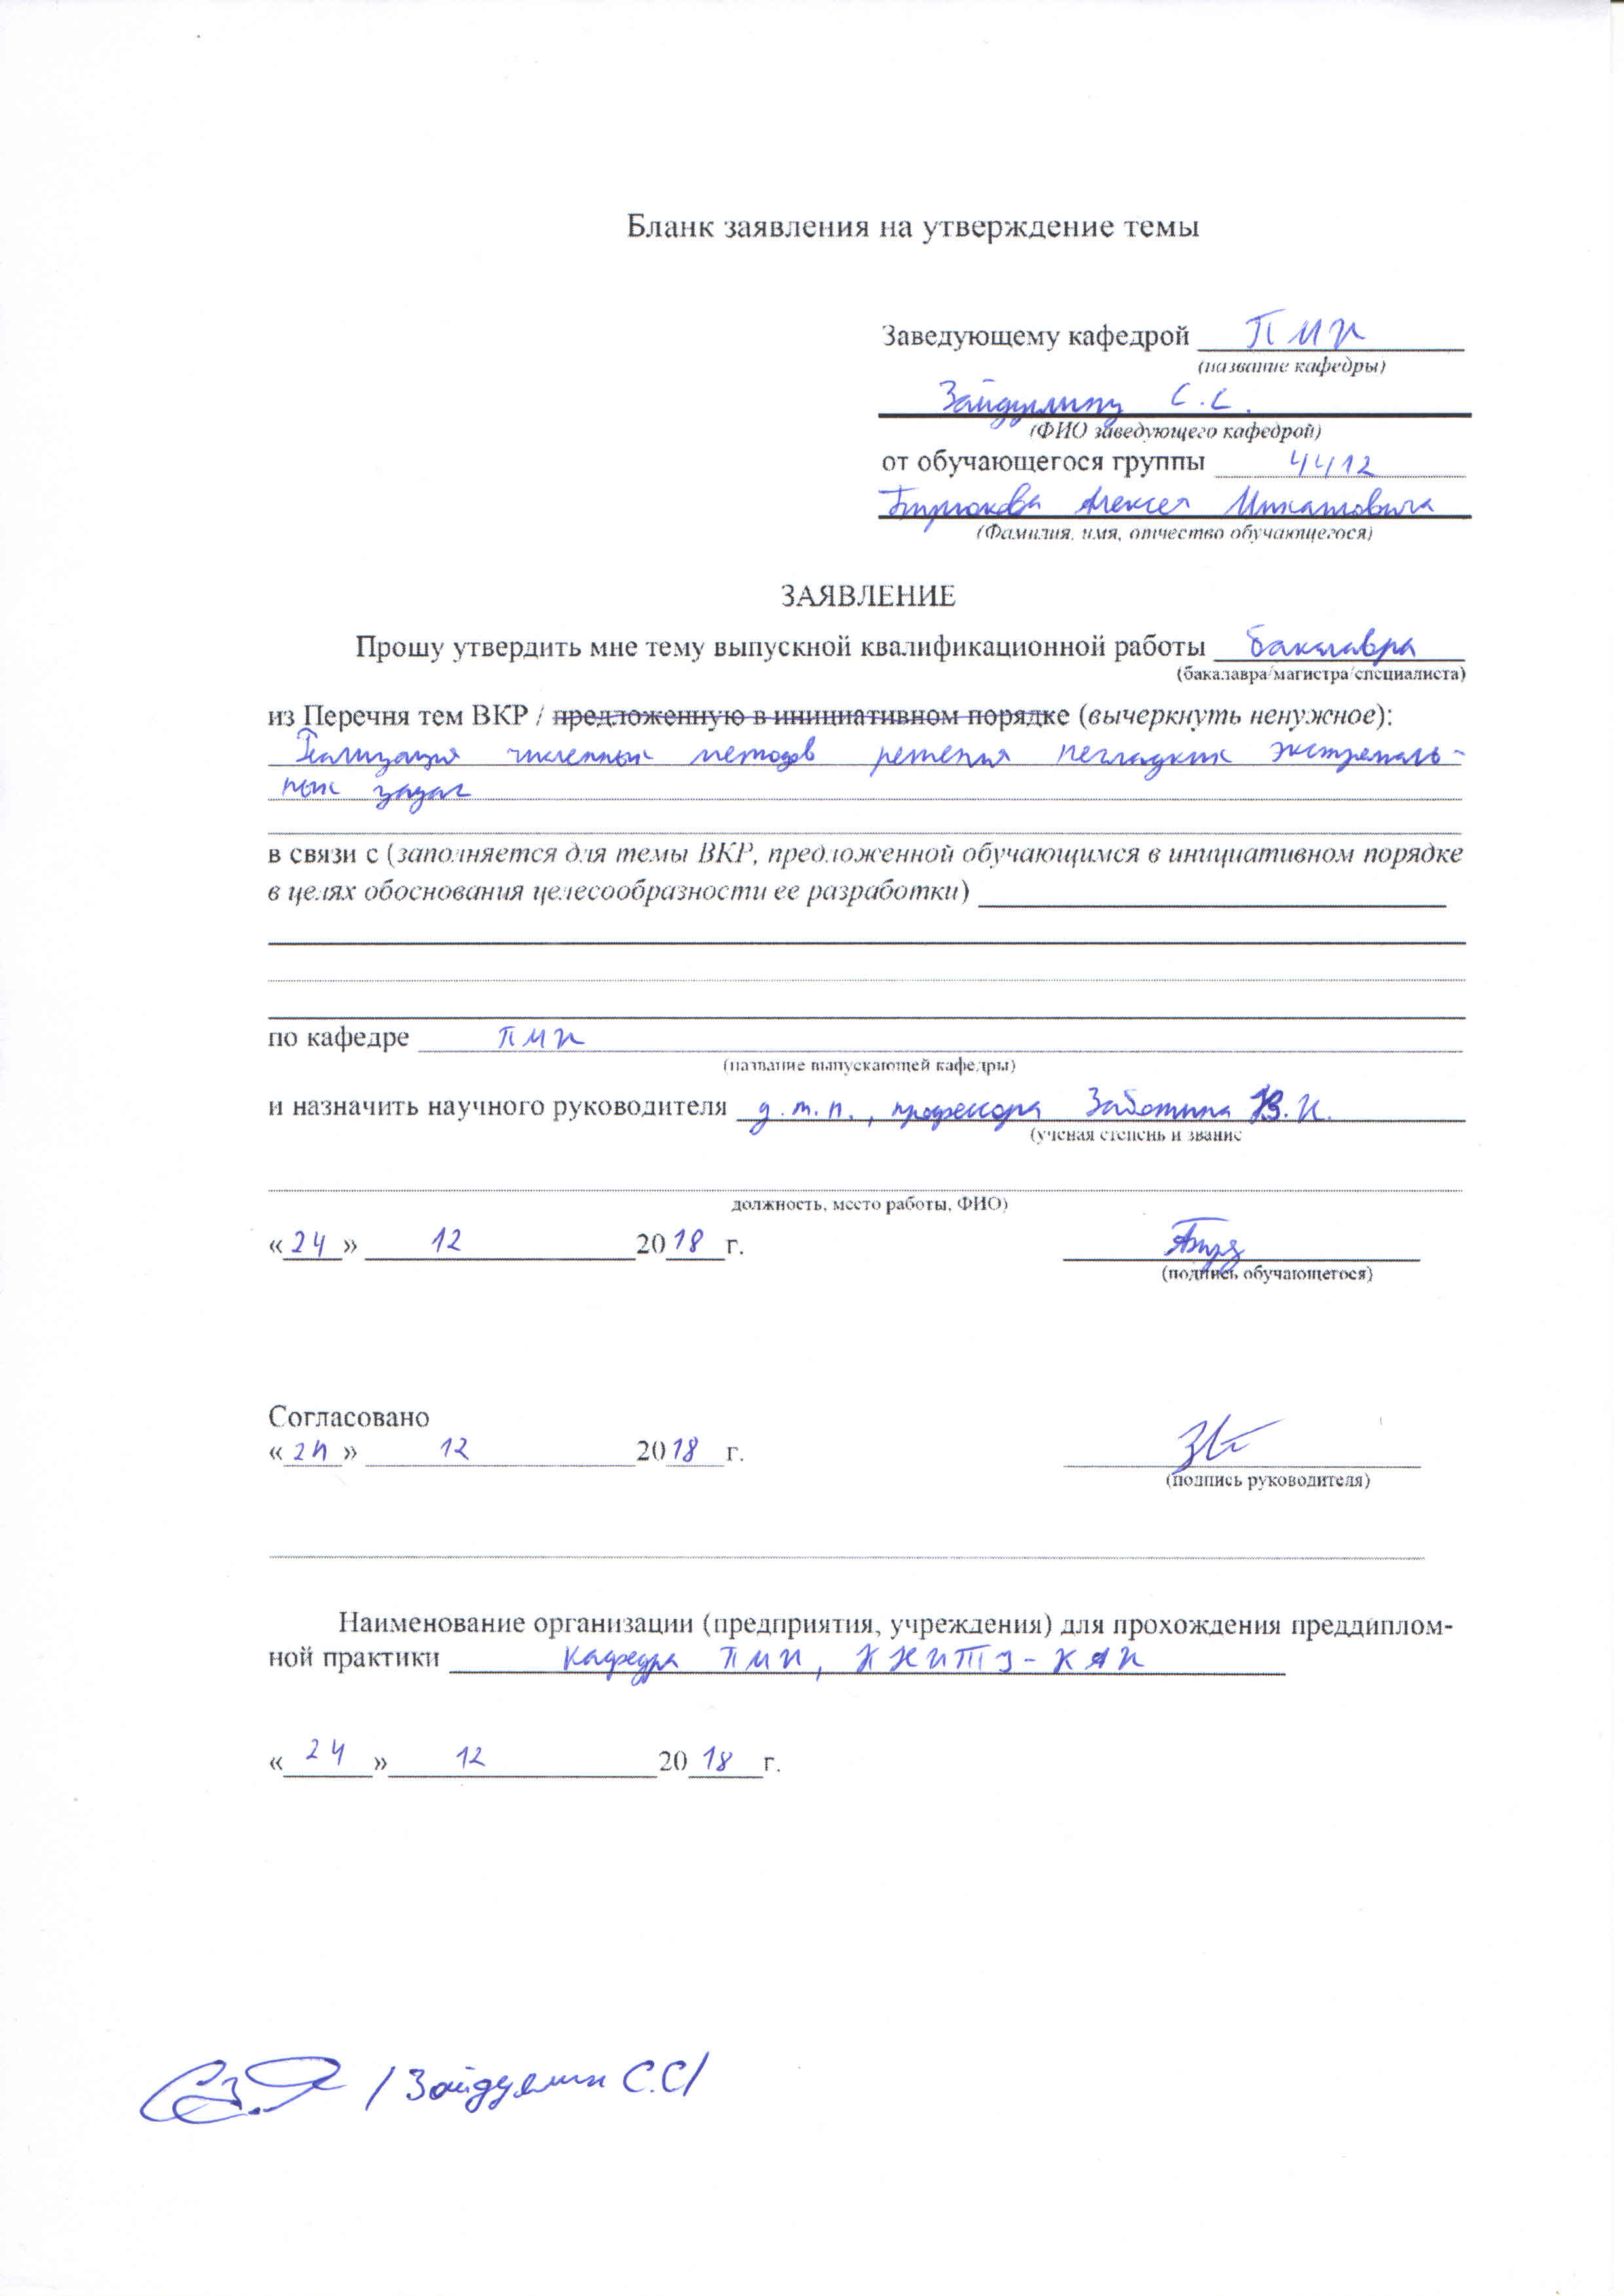 Бланк заявления на утверждение темы
Заведующему кафедрой ПМИ
(название кафедры)
Зайдуллину С.С.
(ФИО заведующего кафедрой)
от обучающегося группы 4412
Бирюкова Алексея
(Фамилия, имя, отчество обучающегося)
ЗАЯВЛЕНИЕ
Прошу утвердить мне тему выпускной квалификационной работы бакалавра
(бакалавра/магистра/специалиста)
из Перечня тем ВКР / предложенную в инициативном порядке (вычеркнуть ненужное):
Реализация численных методов решения негладких экстремаль-
ных задач
в связи с (заполняется для темы ВКР, предложенной обучающимся в инициативном порядке
в целях обоснования целесообразности ее разработки)
по кафедре ПМИ
(название выпускающей кафедры)
и назначить научного руководителя д.т.н., профессора Заботина В.И.
(ученая степень и звание
должность, место работы, ФИО)
«24» 12 2018 г.
(подпись обучающегося)
Согласовано
«24» 12 2018 г.
(подпись руководителя)
Наименование организации (предприятия, учреждения) для прохождения преддиплом-
ной практики кафедра ПМИ, КНИТУ-КАИ
«24» 12 2018 г.
/ Зайдуллин С.С/